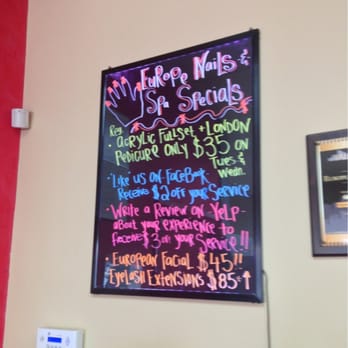 Europe Nails &
Spa Specials
Reg.
• Acrylic Fullset + London
Pedicure only $35 on
Tues &
Wedn.
• Like us on Facebook
Receive $2 off your Service
• Write a Review on Yelp -
about your experience to
receive $3 on your Service!!
• European Facial $45!!
Eyelash Extensions $85 & ↑